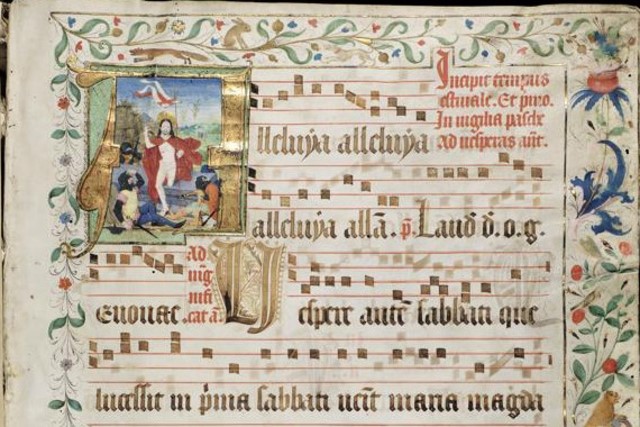 Incipit tempus
estiuale. Et primo.
In uigilia pasche
ad uesperas ant.
Alleluya alleluya
alleluya alla. p̄. Laud d̄. o. g.
euouae. ad mag nifi cat a.
Vespere autē sabbati que
lucessit in p̄ma sabbati uēit maria magda